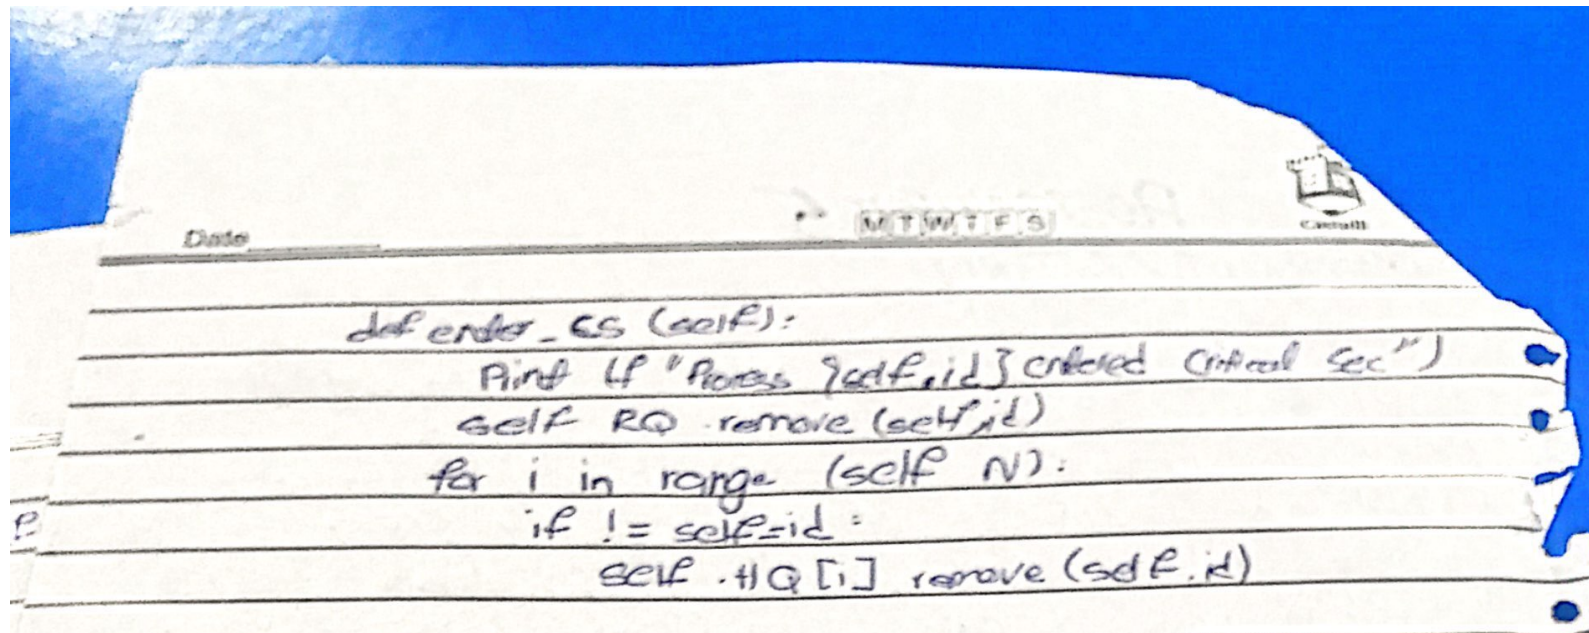 Date
M T W T F S
def enter_CS (self):
Print (f "Process {self.id} entered Critical Sec")
self RQ .remove (self.id)
for i in range (self N):
if != self.id :
self .HQ [i] remove (self.id)